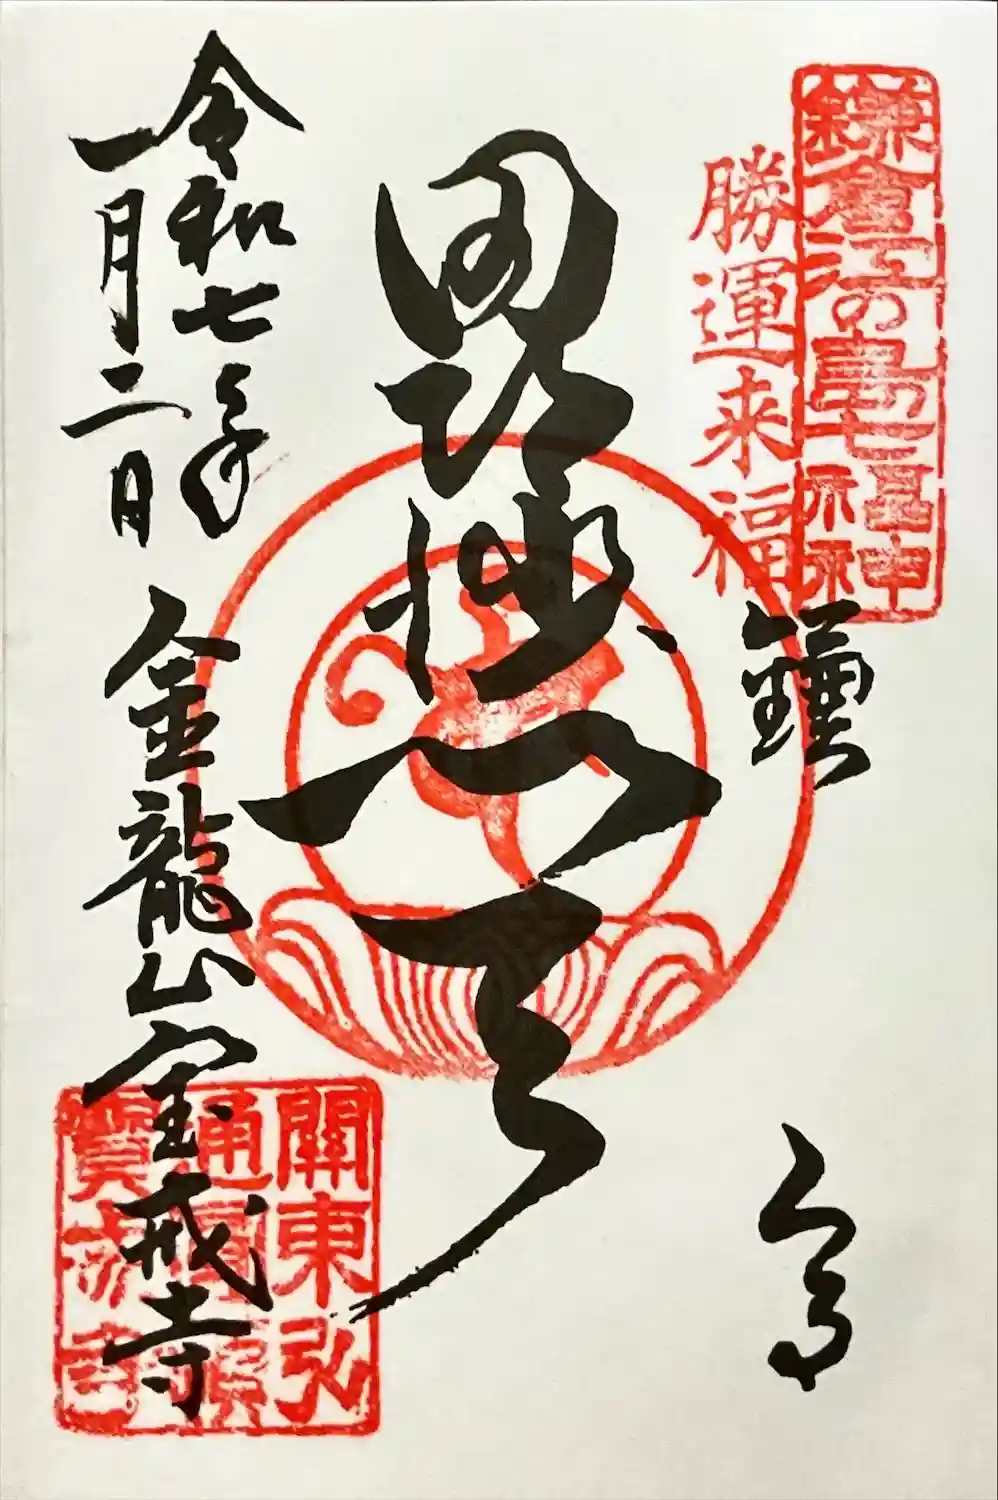 鎌倉江の島七福神
勝運来福
鎌倉
毘沙門天
令和七年
一月二日
金龍山宝戒寺
關東弘
通圓頓
寳戒寺